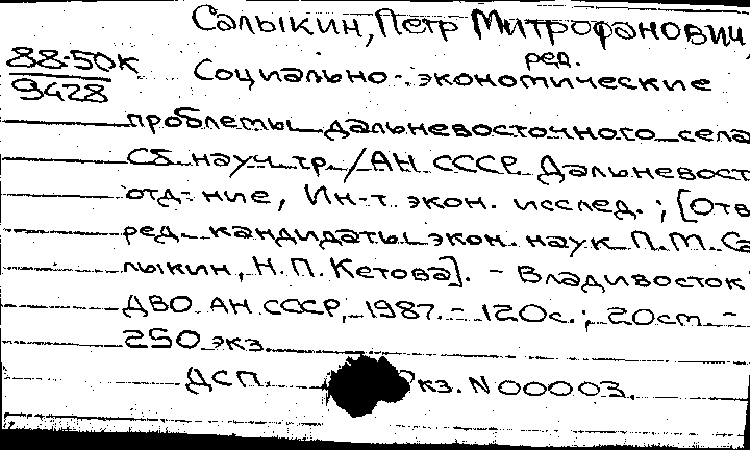 Салыкин, Петр Митрофанович,
ред.
88-50К Социально-экономические
9428
проблемы дальневосточного села
Сб. науч. тр. / АН СССР. Дальневост
отд-ние, Ин-т экон. исслед.; [Отв
ред. кандидаты экон. наук П.М. Са
лыкин, Н.П. Кетова]. - Владивосток
ДВО АН СССР, 1987. - 120с.; 20см. -
250 экз.
ДСП. кз. N 00003.